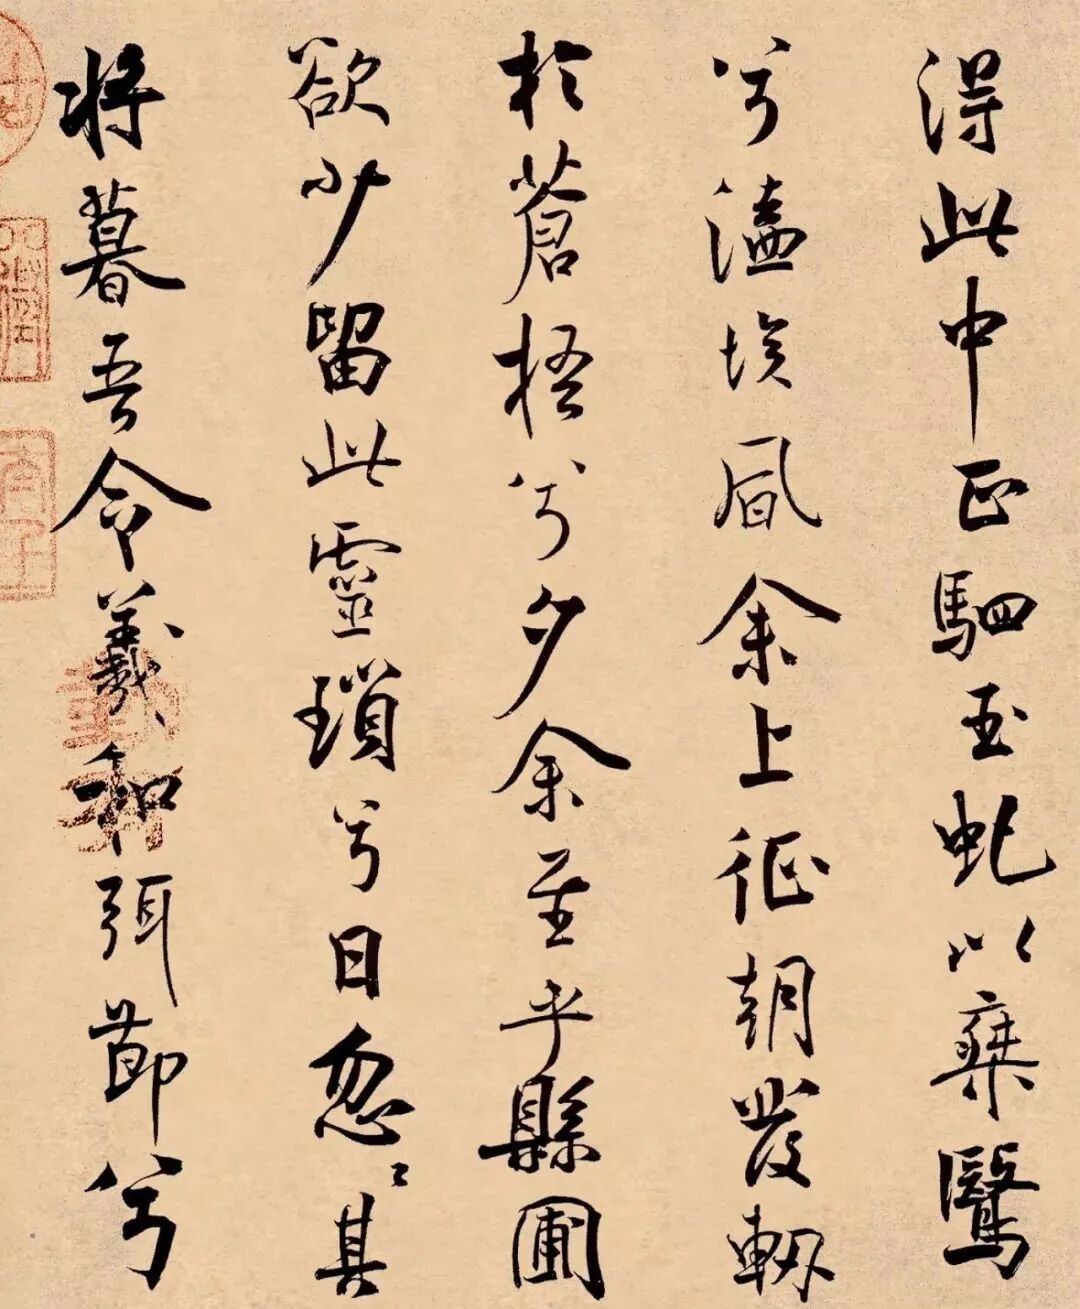 得此中正駟玉虬以椉鷖
兮溘埃風余上征朝發軔
於蒼梧兮夕余至乎縣圃
欲少留此靈瑣兮日忽〻其
将暮吾令羲和弭節兮